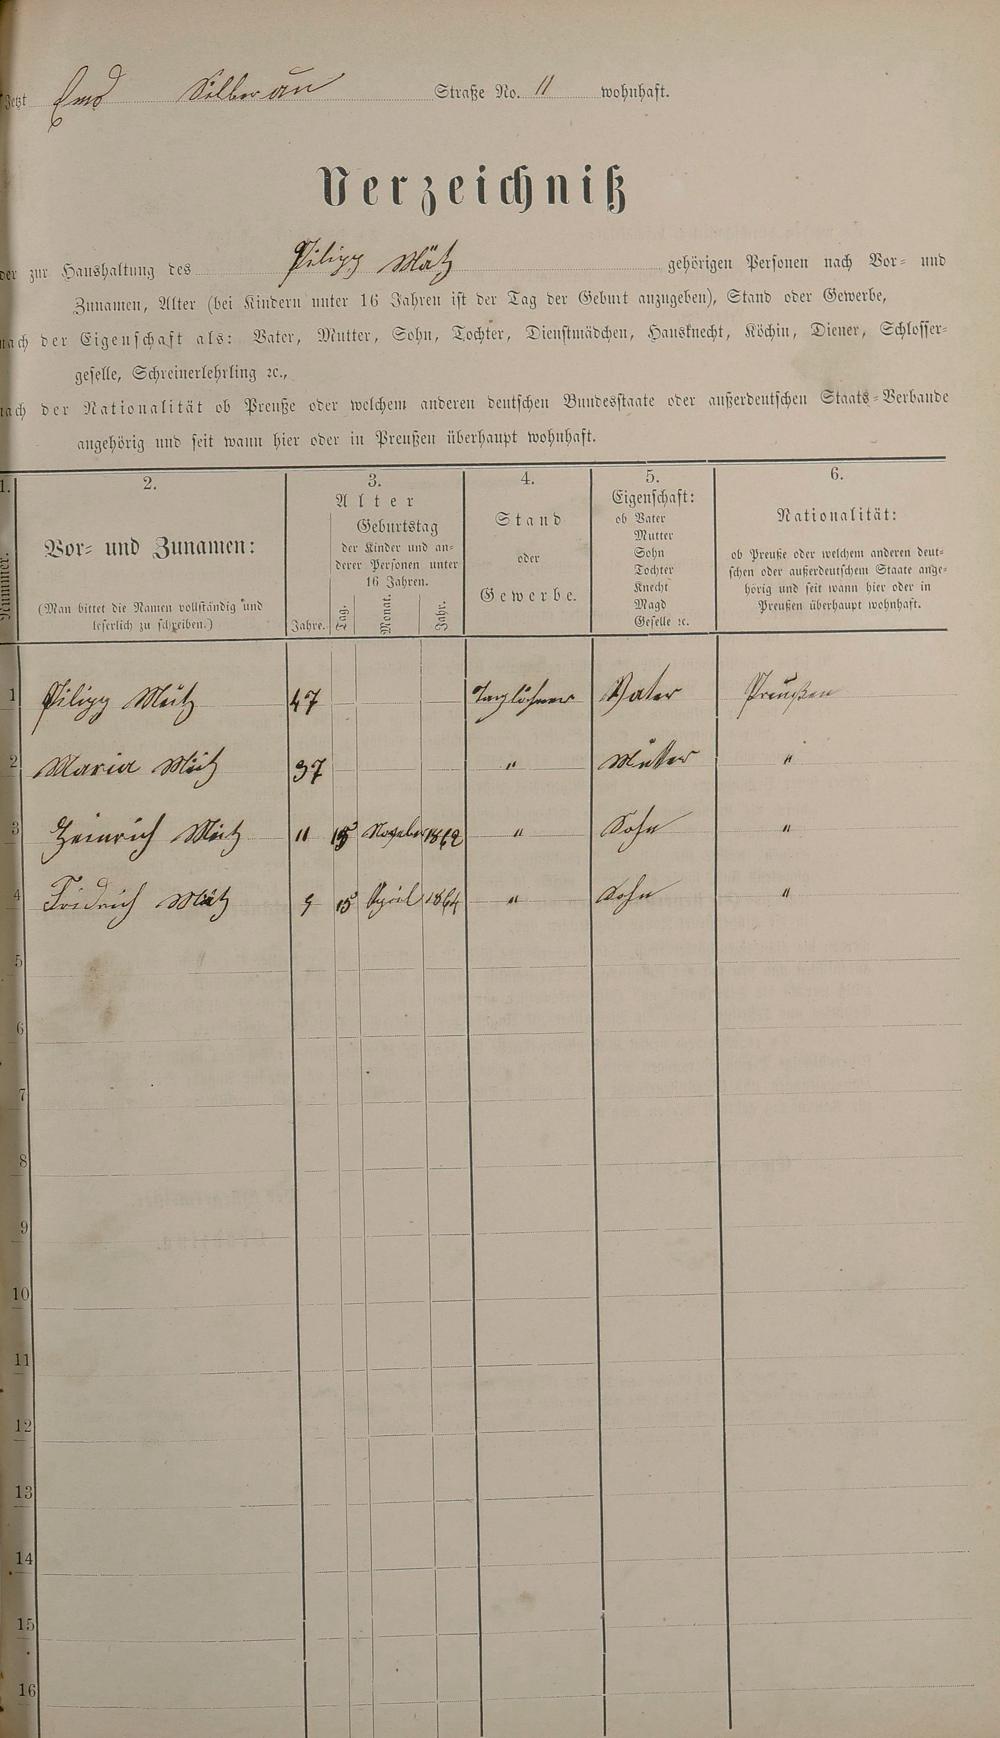 Jetzt Ems Silberau Straße No. 11 wohnhaft.
Verzeichniß
der zur Haushaltung des Pilipp Mätz gehörigen Personen nach Vor- und
Zunamen, Alter (bei Kindern unter 16 Jahren ist der Tag der Geburt anzugeben), Stand oder Gewerbe,
nach der Eigenschaft als: Vater, Mutter, Sohn, Tochter, Dienstmädchen, Hausknecht, Köchin, Diener, Schlosser-
geselle, Schreinerlehrling ꝛc.,
nach der Nationalität ob Preuße oder welchem anderen deutschen Bundesstaate oder außerdeutschen Staats-Verbande
angehörig und seit wann hier oder in Preußen überhaupt wohnhaft.
1. 2. 3. 4. 5. 6.
Nummer.
Vor- und Zunamen:
(Man bittet die Namen vollständig und
leserlich zu schreiben.)
Alter
Geburtstag
der Kinder und an-
derer Personen unter
16 Jahren.
Jahre. Tag. Monat. Jahr.
Stand
oder
Gewerbe.
Eigenschaft:
ob Vater
Mutter
Sohn
Tochter
Knecht
Magd
Geselle ꝛc.
Nationalität:
ob Preuße oder welchem anderen deut-
schen oder außerdeutschem Staate ange-
hörig und seit wann hier oder in
Preußen überhaupt wohnhaft.
1 Pilipp Mätz 47 Taglöhner Vater Preußen
2 Maria Mätz 37 " Mutter "
3 Heinrich Mätz 11 15 1862 " Sohn "
4 Fridrich Mätz 9 15 April 1864 " Sohn "
5
6
7
8
9
10
11
12
13
14
15
16